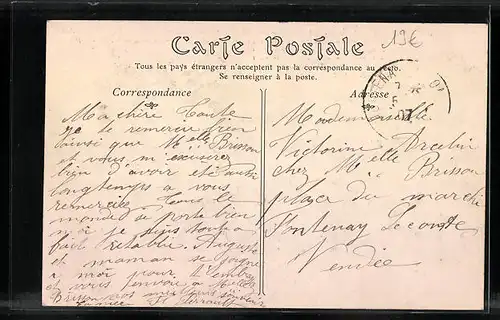 19€
Carte Postale
Tous les pays étrangers n'acceptent pas la correspondance au recto.
Se renseigner à la poste.
Correspondance
Adresse
Ma chère Tante
je te remercie bien
ainsi que Melle Brisson
et vous m'excuserez
bien d'avoir été aussi
longtemps a vous
remercier Tous le
monde se porte bien
moi je suis tout a
fait retablie Auguste
et maman se joigne
a moi pour t'embra
et vous envoie a Melle
Brisson nos meilleurs souvenir
Mademoiselle
Victorine Arcelin
chez Melle Brisson
place du marché
Fontenay Le comte
Vendée